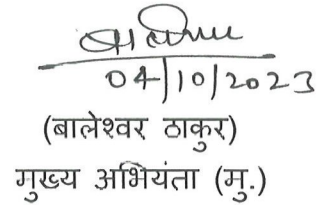 04/10/2023
(बालेश्वर ठाकुर)
मुख्य अभियंता (मु.)